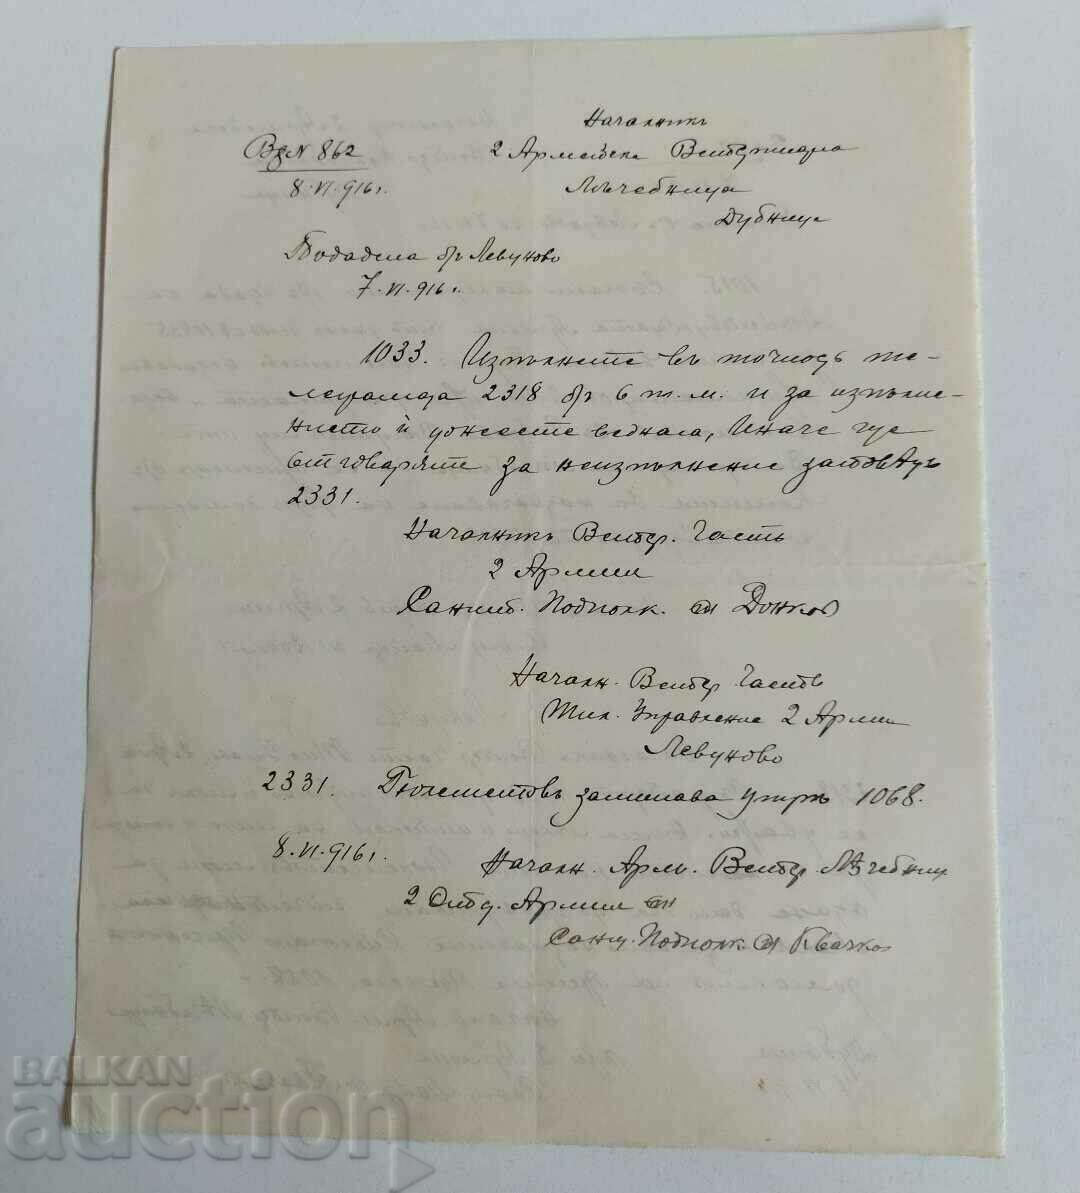 Началникъ
Вх № 862
2 Армейска Ветеринарна
8.VI.916 г.
Лѣчебница
Дубница
Подадена бр Левуново
7.VI.916 г.
1033. Изпълнете въ точность те-
леграмата 2318 бр 6 т.м. и за изпълне-
нието ѝ донесете веднага, Иначе ще
отговаряте за неизпълнение заповѣдь
2331.
Началникъ Ветер. Часть
2 Армия
Санит. Подполк. (п) Донков
Началн. Ветер Часть
Тил. Управление 2 Армия
Левуново
2331. заминава утре 1068.
8.VI.916 г.
Началн. Арм. Ветер. Лѣчебниц
2 Отд. Армия (п)
Сан. Подполк. (п) Квачков
BALKAN
auction